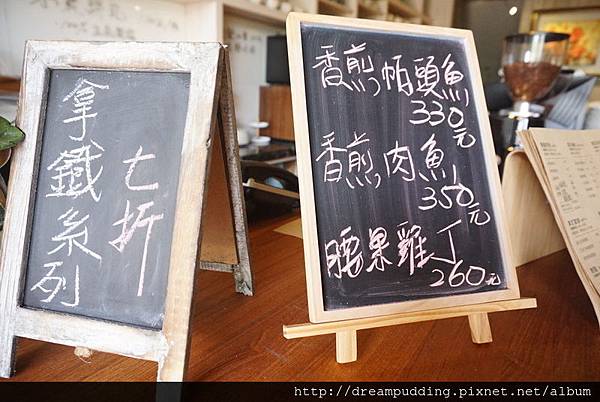 拿鐵系列
七折
香煎帕頭魚
330元
香煎肉魚
350元
腰果雞丁
260元
http://dreampudding.pixnet.net/album